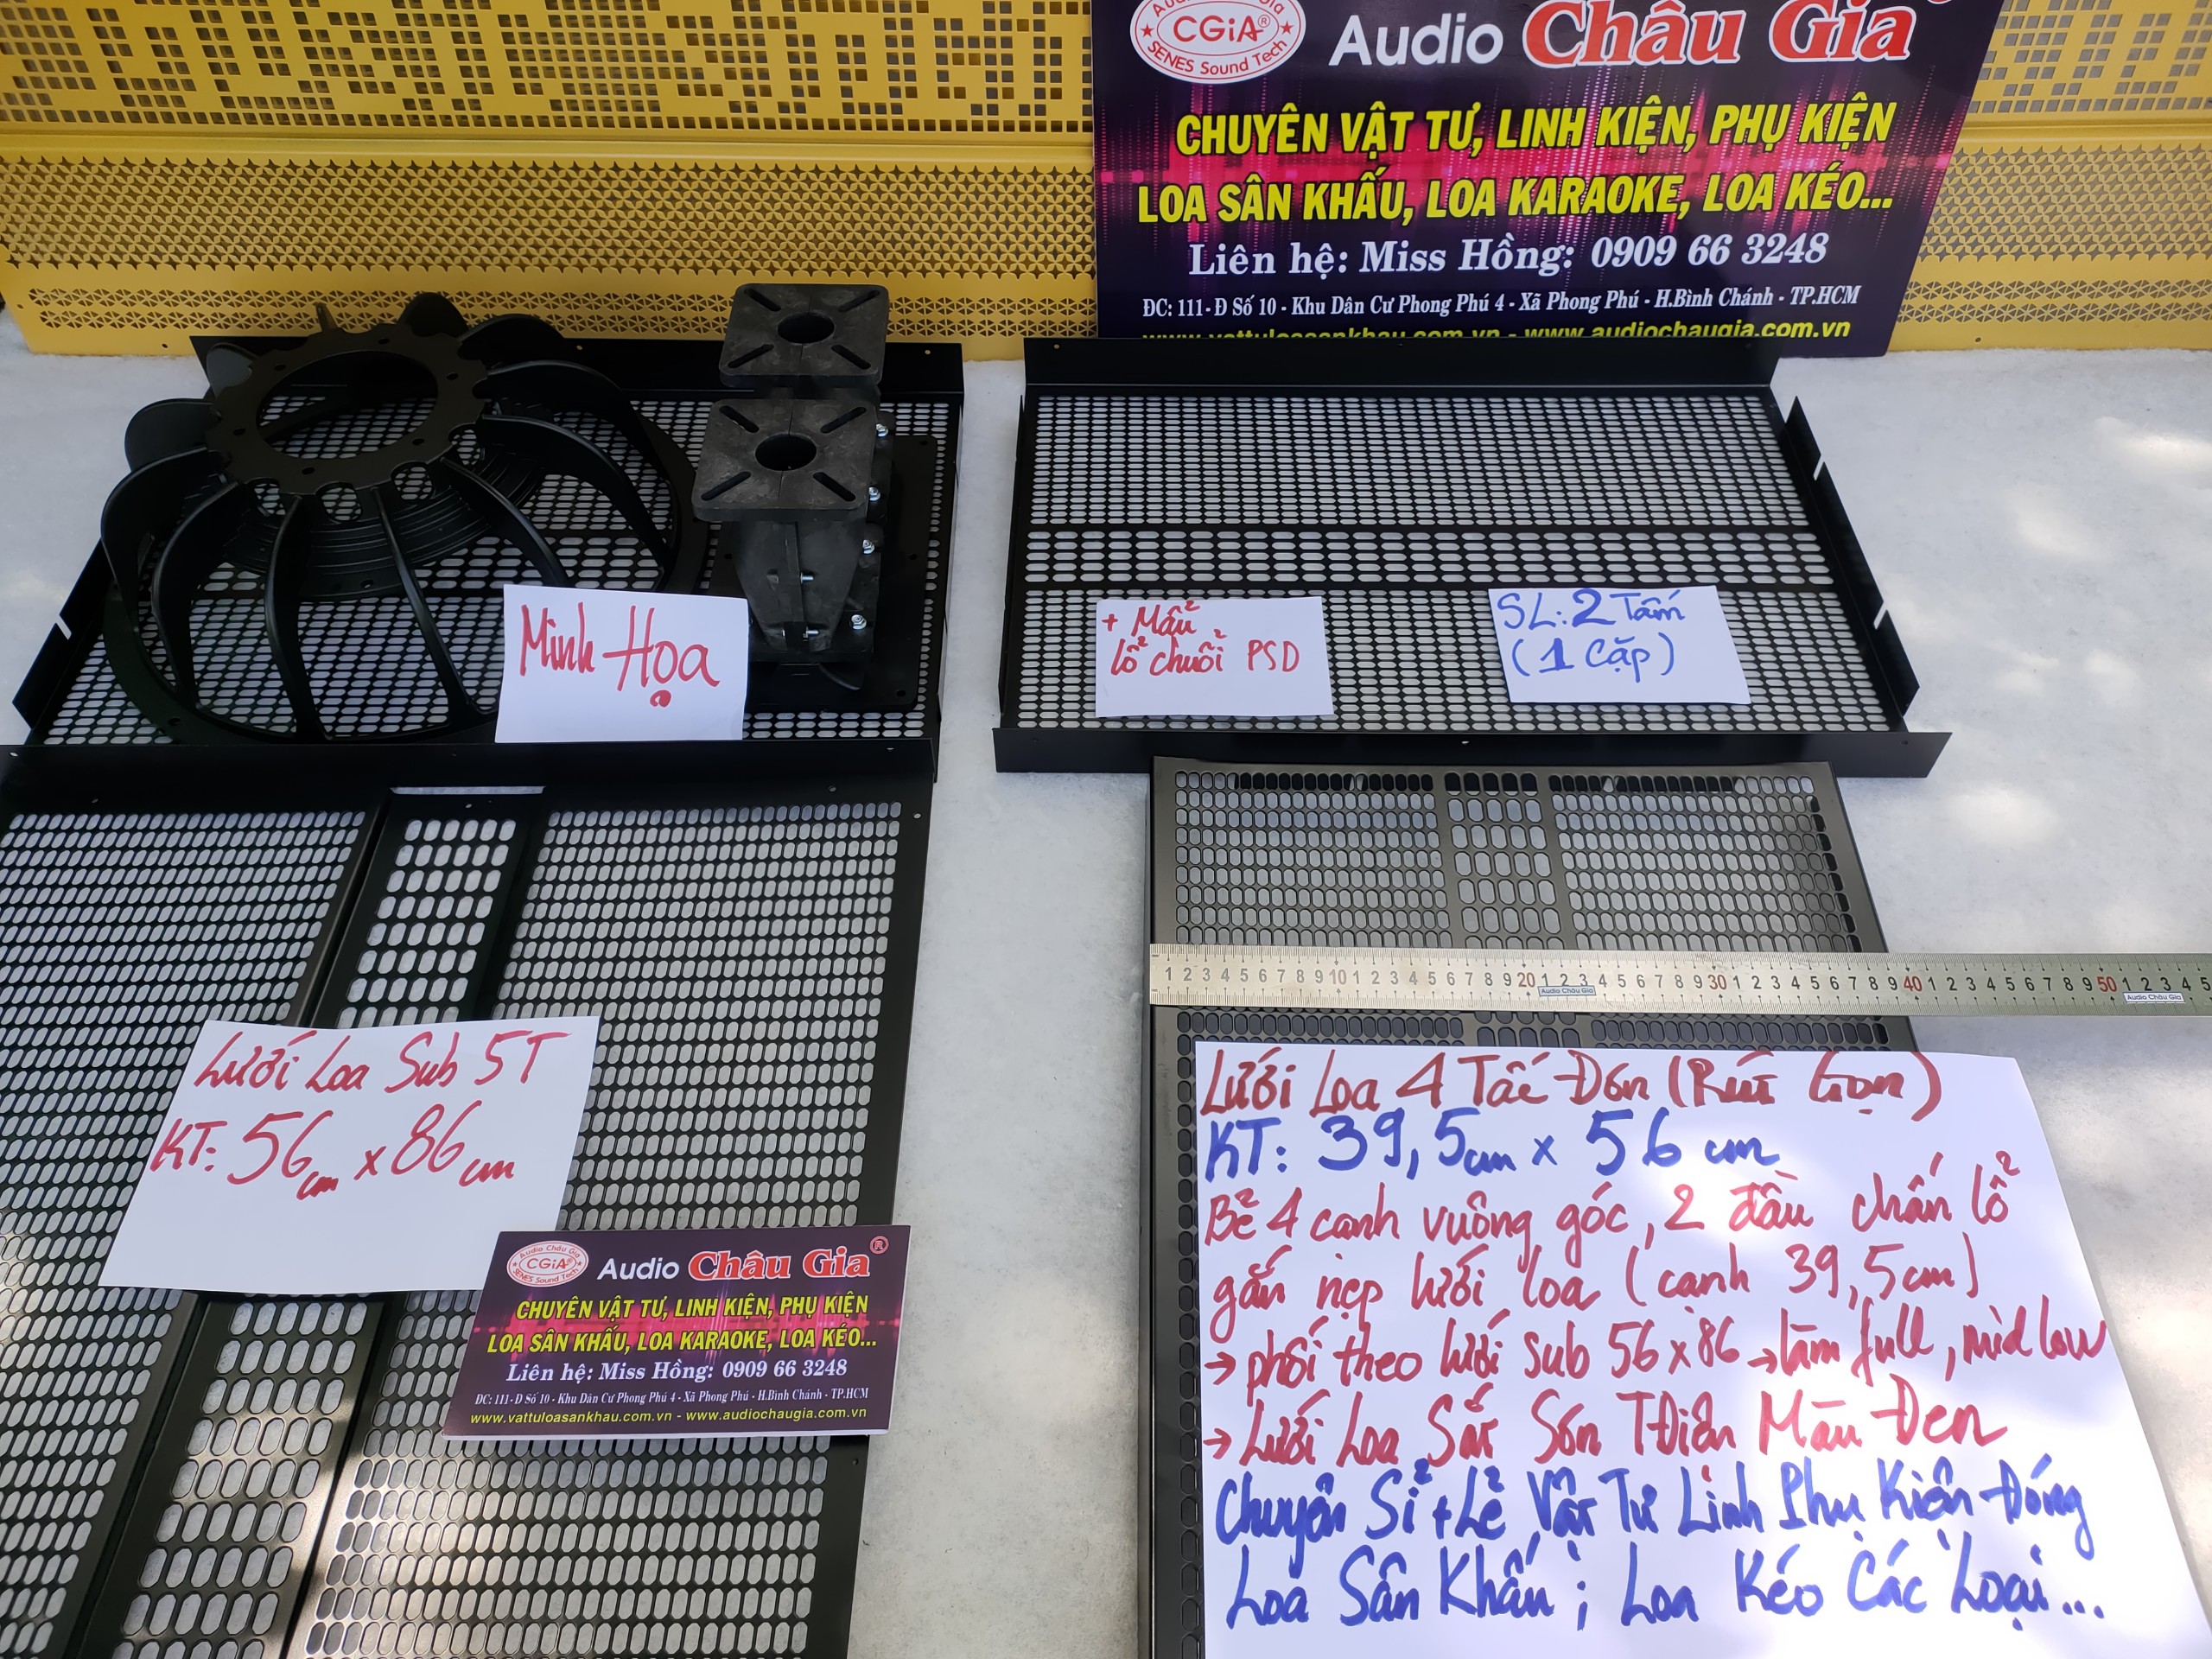 Audio Châu Gia
CGiA®
SENES Sound Tech
Audio Châu Gia
CHUYÊN VẬT TƯ, LINH KIỆN, PHỤ KIỆN
LOA SÂN KHẤU, LOA KARAOKE, LOA KÉO...
Liên hệ: Miss Hồng: 0909 66 3248
ĐC: 111-Đ Số 10 - Khu Dân Cư Phong Phú 4 - Xã Phong Phú - H.Bình Chánh - TP.HCM
www.vattuloasankhau.com.vn - www.audiochaugia.com.vn
Minh Họa
+ Mẫu
lỗ chuỗi PSD
SL: 2 Tấm
(1 Cặp)
1 2 3 4 5 6 7 8 9 10 1 2 3 4 5 6 7 8 9 20 1 2 3 4 5 6 7 8 9 30 1 2 3 4 5 6 7 8 9 40 1 2 3 4 5 6 7 8 9 50 1 2 3 4 5
Audio Châu Gia
Audio Châu Gia
Lưới Loa Sub 5T
KT: 56cm x 86cm
Audio Châu Gia
CGiA®
SENES Sound Tech
Audio Châu Gia®
CHUYÊN VẬT TƯ, LINH KIỆN, PHỤ KIỆN
LOA SÂN KHẤU, LOA KARAOKE, LOA KÉO...
Liên hệ: Miss Hồng: 0909 66 3248
ĐC: 111-Đ Số 10 - Khu Dân Cư Phong Phú 4 - Xã Phong Phú - H.Bình Chánh - TP.HCM
www.vattuloasankhau.com.vn - www.audiochaugia.com.vn
Lưới Loa 4 Tấc Đơn (Rút Gọn)
KT: 39,5cm x 56 cm
Bẻ 4 cạnh vuông góc, 2 đầu chấn lỗ
gắn nẹp lưới loa (cạnh 39,5cm)
→ phối theo lưới sub 56x86 → làm full, mid low
→ Lưới Loa Sắt Sơn TĐiện Màu Đen
Chuyên Sỉ + Lẻ Vật Tư Linh Phụ Kiện Đóng
Loa Sân Khấu ; Loa Kéo Các Loại...